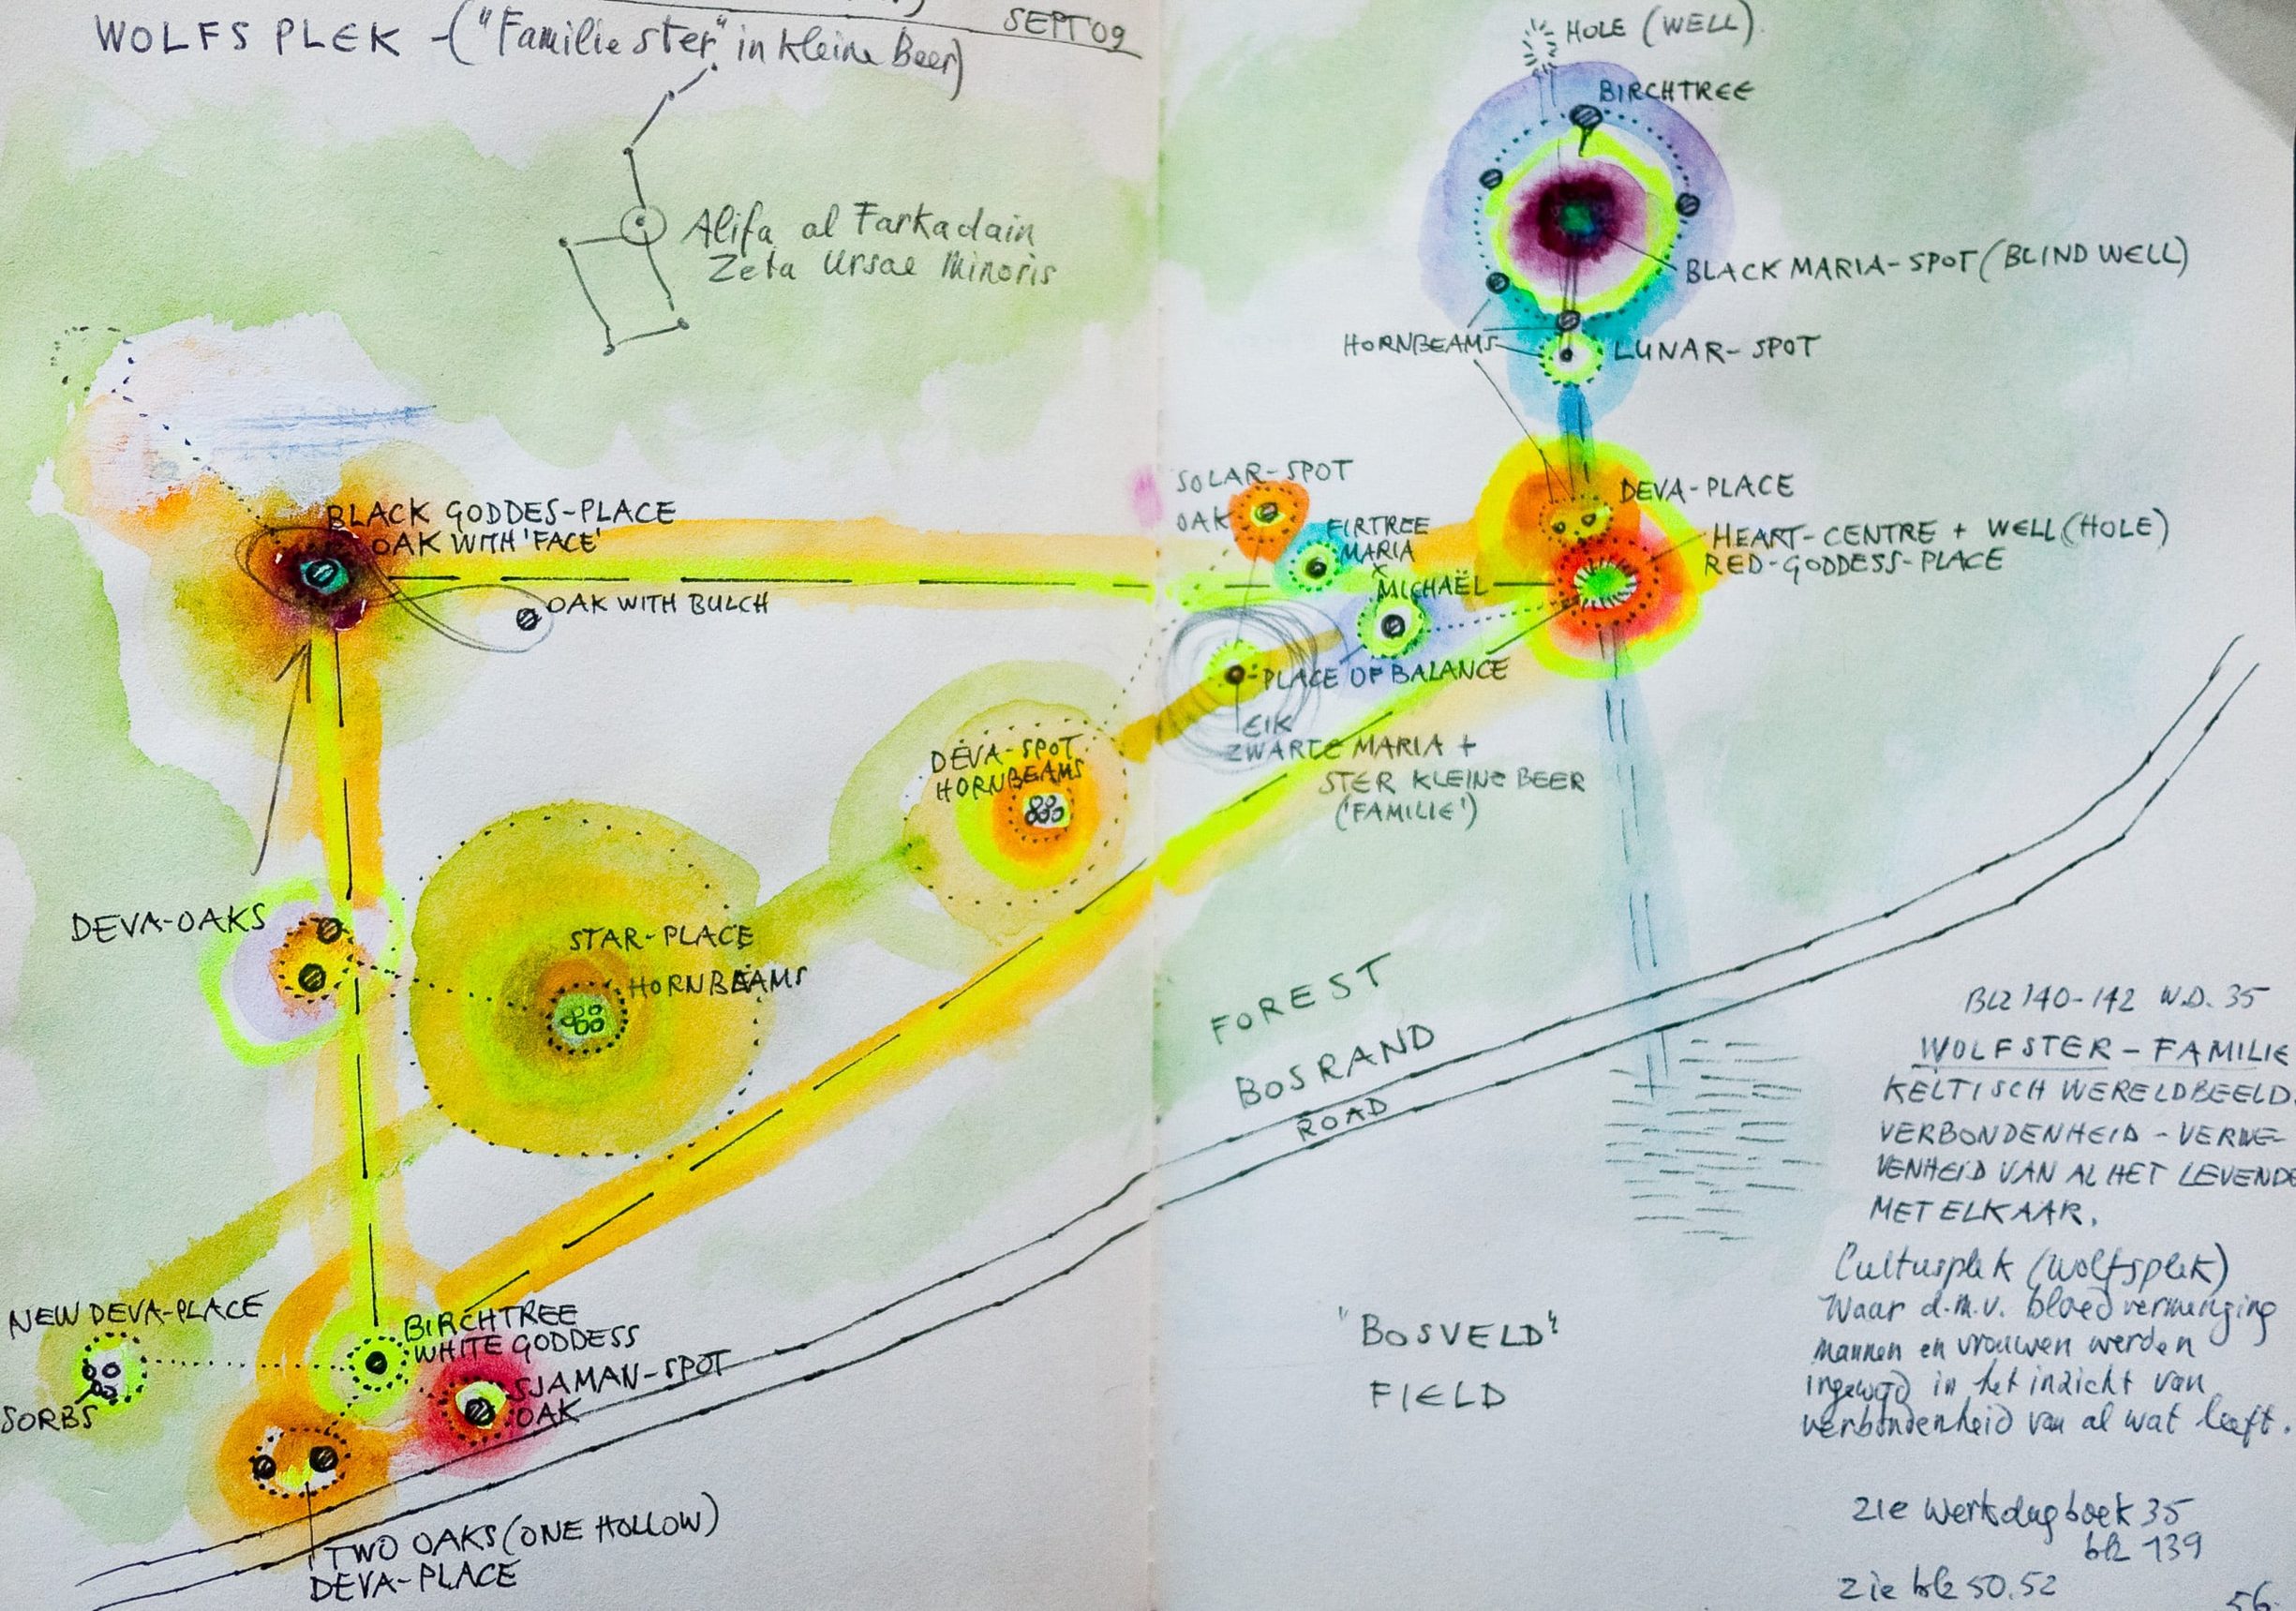 WOLFS PLEK - ("Familie ster" in kleine Beer)
SEPT '09
Alifa al Farkadain
Zeta Ursae Minoris
HOLE (WELL)
BIRCHTREE
BLACK MARIA-SPOT (BLIND WELL)
HORNBEAMS
LUNAR-SPOT
DEVA-PLACE
HEART-CENTRE + WELL (HOLE)
RED-GODDESS-PLACE
SOLAR-SPOT
OAK
FIRTREE
MARIA
X
MICHAËL
PLACE OF BALANCE
EIK
ZWARTE MARIA +
STER KLEINE BEER
('FAMILIE')
BLACK GODDES-PLACE
OAK WITH 'FACE'
OAK WITH BULCH
DEVA-SPOT
HORNBEAMS
DEVA-OAKS
STAR-PLACE
HORNBEAMS
NEW DEVA-PLACE
SORBS
BIRCHTREE
WHITE GODDESS
SJAMAN-SPOT
OAK
TWO OAKS (ONE HOLLOW)
DEVA-PLACE
FOREST
BOSRAND
ROAD
"BOSVELD"
FIELD
BLZ 140-142 W.D. 35
WOLFSTER - FAMILIE
KELTISCH WERELDBEELD.
VERBONDENHEID - VERWE-
VENHEID VAN AL HET LEVENDE
MET ELKAAR.
Cultusplek (Wolfsplek)
Waar d.m.v. bloedvermenging
mannen en vrouwen werden
ingewijd in het inzicht van
verbondenheid van al wat leeft.
zie werkdagboek 35
blz 139
zie blz 50.52
56